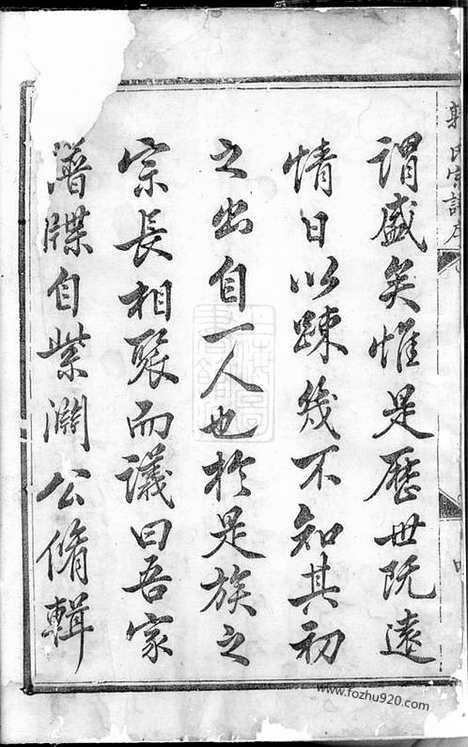 氏宗譜序
謂盛矣惟是歷世既遠
情日以疎幾不知其初
之出自一人也於是族之
宗長相聚而議曰吾家
譜牒自紫瀾公脩輯
www.fozhu920.com